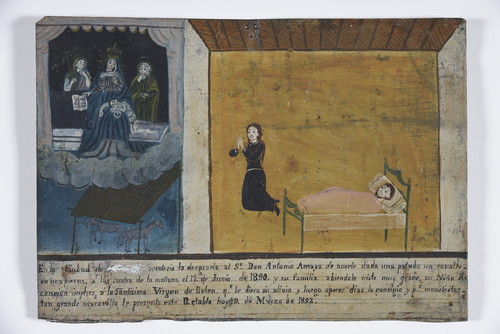 En la Ciudad de acontecio la desgracia al Sr. Don Antonio Amaya de averle dado una patada un cavallo
en una pierna, a las cuatro de la mañana el 12 de Junio de 1890. y su familia abiendole visto muy grave, su Niña As
cencion imploro, a la Santisima Virgen de Belen, qe. le diera su alivio y luego a pocos dias lo consiguio y pa. manifestar
tan grande maravilla le presenta este Retablo hoy 20. de Marzo de 1892.